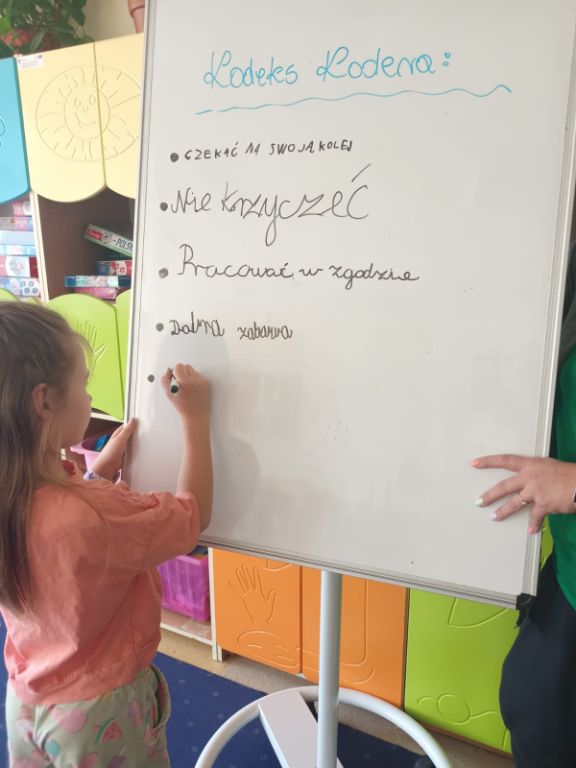 Kodeks Kodera:
• CZEKAĆ NA SWOJĄ KOLEJ
• Nie krzyczeć
• Pracować w zgodzie
• Dobra zabawa
•